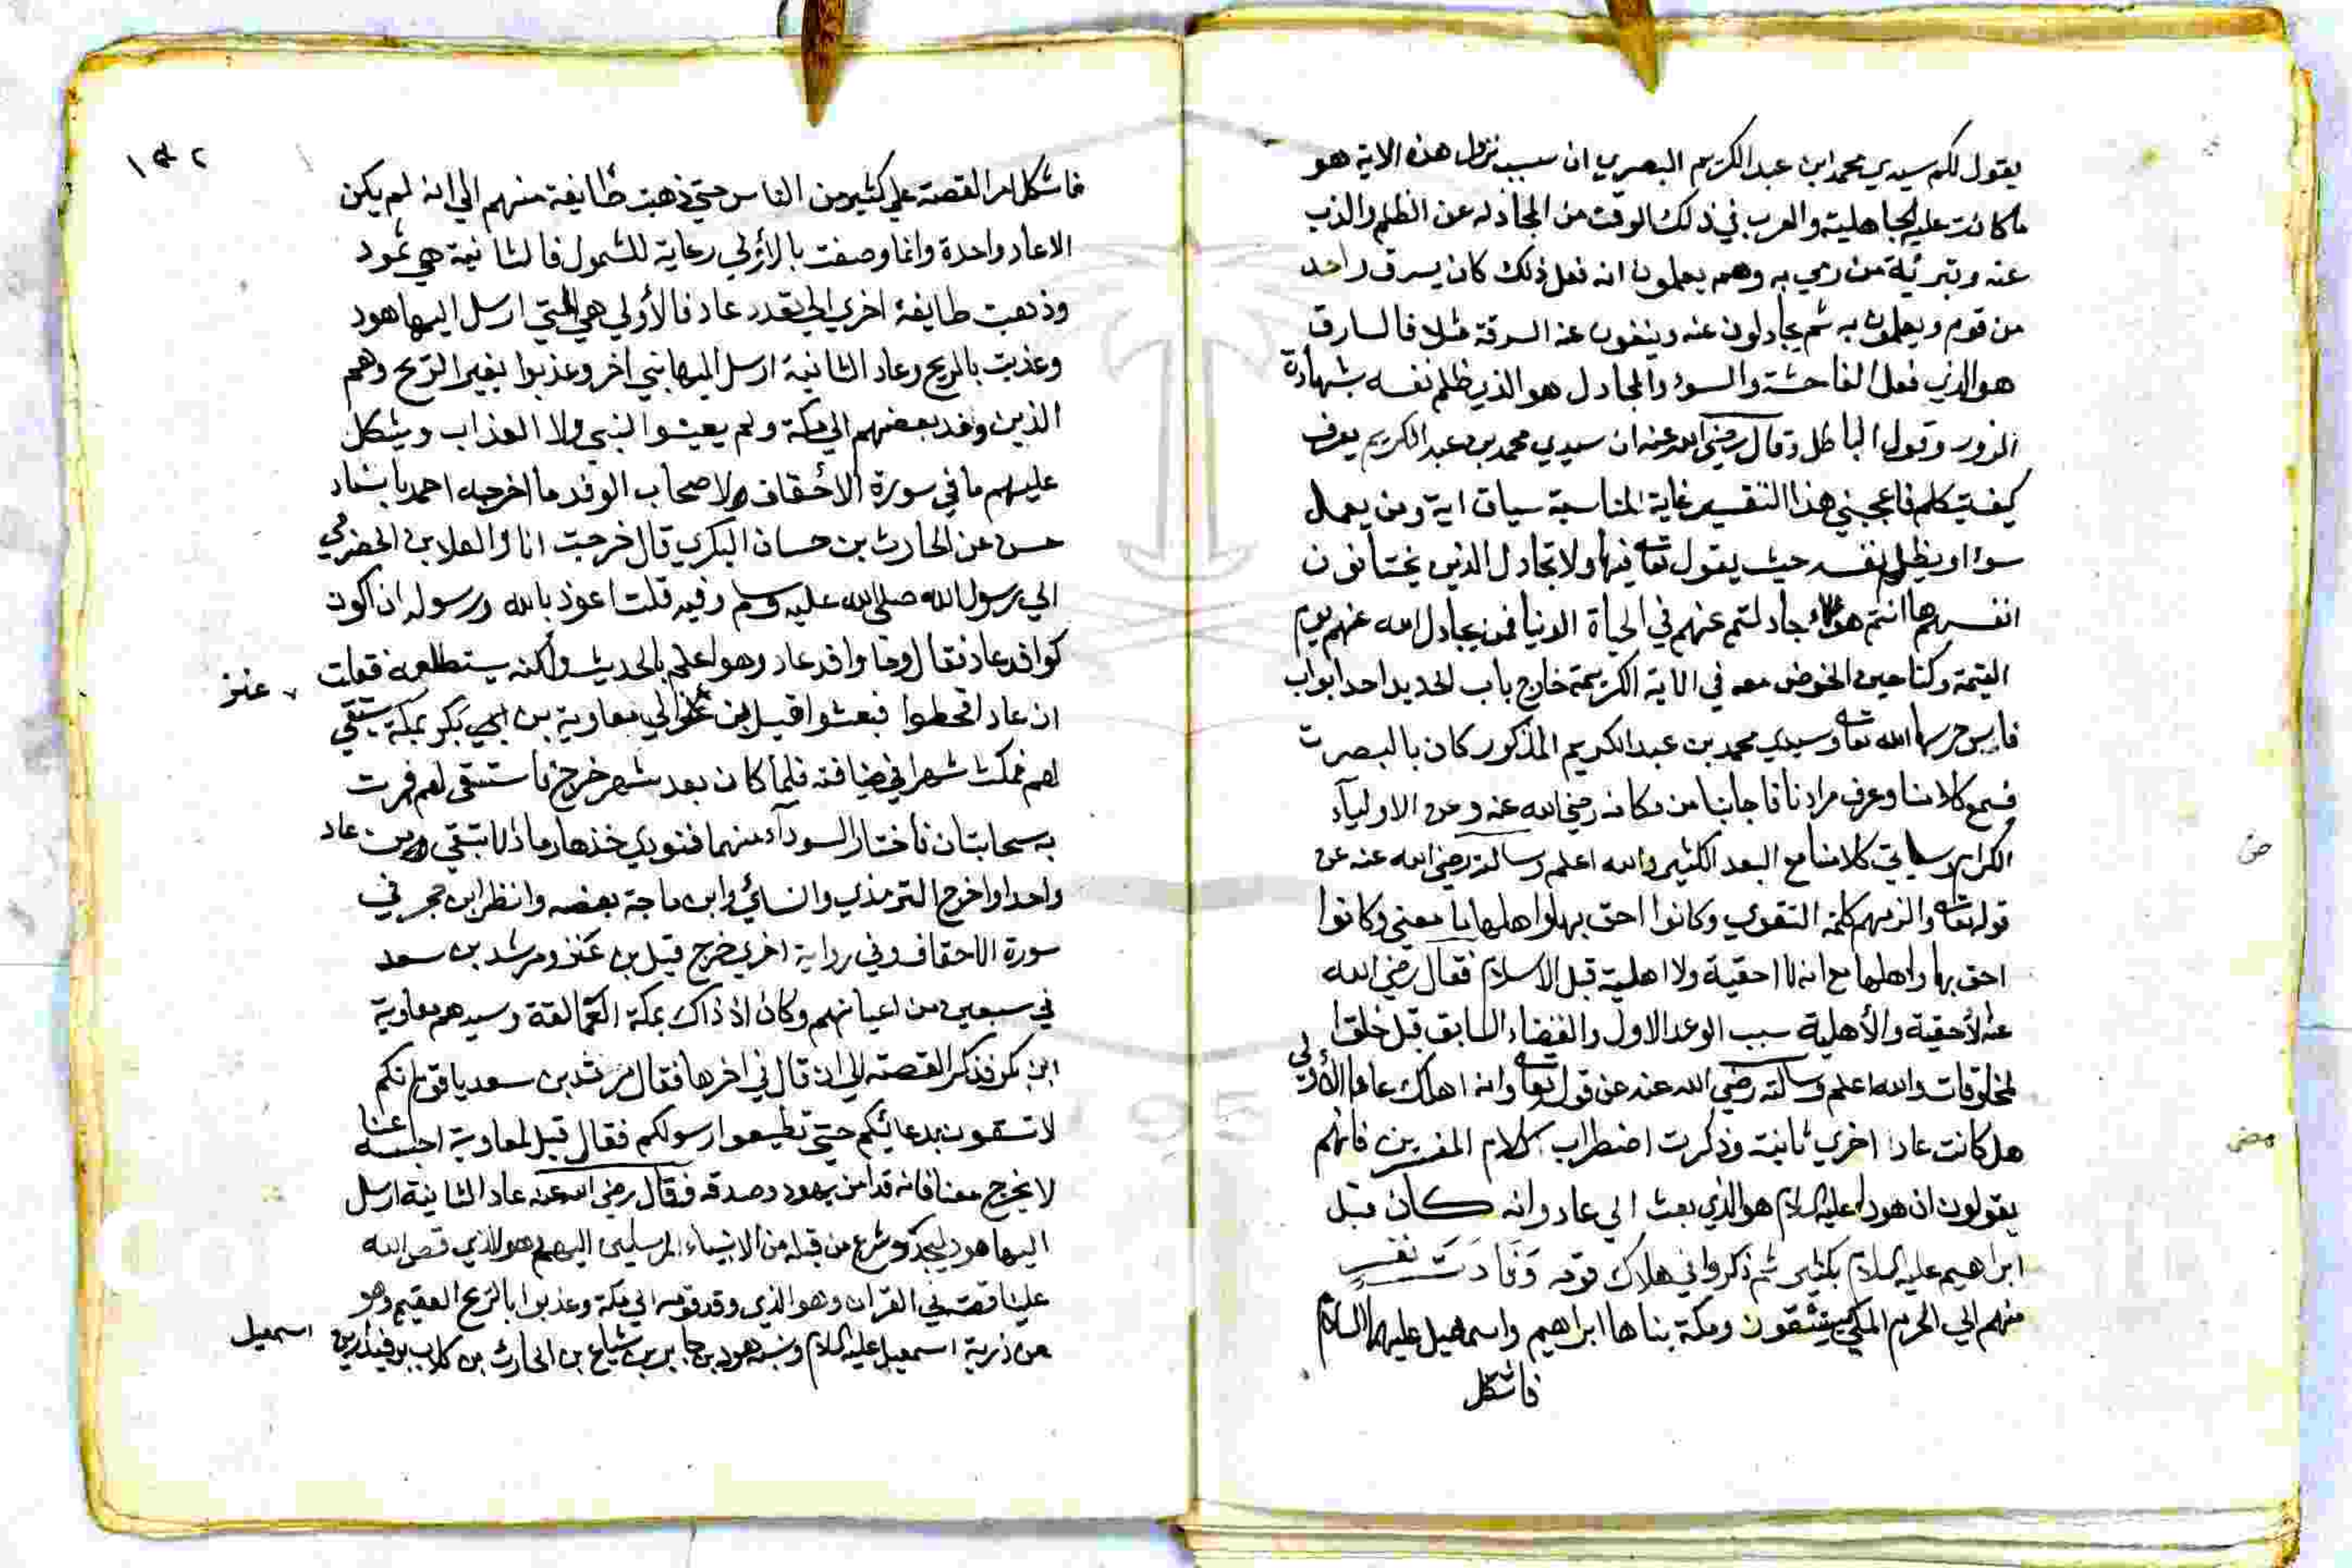 يقول لكم سيدي محمد ابن عبد الكريم البصري ان سبب نزول هذه الاية هو
ما كانت عليه الجاهلية والعرب في ذلك الوقت من المجادلة عن الظلم والذب
عنه وتبرئة من رمي به وهم يعلمون انه فعل ذلك كان يسرق واحد
من قوم ويعلمون به ثم يجادلون عنه وينفون عنه السرقة مثلا فالسارق
هو الذي فعل الفاحشة والسوء والمجادل هو الذي ظلم نفسه بشهادة
الزور وقول الباطل وقال رضي الله عنه ان سيدي محمد بن عبد الكريم يعرف
كيف يتكلم فاعجبني هذا التفسير غاية المناسبة سياق اية ومن يعمل
سوءا او يظلم نفسه حيث يقول تعالى فيها ولا تجادل الذين يختانون
انفسهم ها انتم هؤلاء جادلتم عنهم في الحياة الدنيا فمن يجادل الله عنهم يوم
القيمة وكنا حين الخوض معه في الاية الكريمة خارج باب الحديد احد ابواب
فاس حرسها الله تعالى وسيدي محمد بن عبد الكريم المذكور كان بالبصرة
فسمع كلامنا وعرف مرادنا فاجابنا من مكانه رضي الله عنه وعن الاولياء
الكرام وسياتي كلامنا مع البعد الكثير والله اعلم وسالته رضي الله عنه عن
ض
قوله تعالى والزمهم كلمة التقوى وكانوا احق بها واهلها ما معنى وكانوا
احق بها واهلها مع انه لا احقية ولا اهلية قبل الاسلام فقال رضي الله
عنه الأحقية والأهلية سبب الوعد الاول والقضاء السابق قبل خلق
المخلوقات والله اعلم وسالته رضي الله عنه عن قوله تعالى وانه اهلك عادا الأولى
هل كانت عادا اخري ثانية وذكرت اضطراب كلام المفسرين فانهم
يقولون ان هودا عليه السلام هو الذي بعث الي عاد وانه كان قبل
ابراهيم عليه السلام بكثير ثم ذكروا في هلاك قومه
منهم الي الحرم المكي يستسقون ومكة بناها ابراهيم واسمعيل عليهما السلام
فاشكل
١٤٢
فاشكل امر القصة علي كثير من الناس حتي ذهبت طايفة منهم الي انه لم يكن
الا عاد واحدة وانما وصفت بالأولي رعاية للشمول فالثانية هي ثمود
وذهبت طايفة اخري الي تعدد عاد فالأولي هي التي ارسل اليها هود
وعذبت بالريح وعاد الثانية ارسل اليها نبي اخر وعذبوا بغير الريح وهم
الذين وفد بعضهم الي مكة ولم يعينوا النبي ولا العذاب ويشكل
عليهم ما في سورة الأحقاف ولاصحاب الوفد ما اخرجه احمد باسناد
حسن عن الحارث بن حسان البكري قال خرجت انا والعلا بن الحضرمي
الي رسول الله صلى الله عليه وسلم وفيه قلت اعوذ بالله ورسوله ان اكون
كوافد عاد فقال وما وافد عاد وهو اعلم بالحديث ولكنه يستطعمه فقلت
عنز
ان عاد اقحطوا فبعثوا قيل بن عنز الي معاوية بن ابي بكر بمكة يستسقي
لهم فمكث شهرا في ضيافته فلما كان بعد شهر خرج فاستسقى لهم فمرت
به سحابتان فاختار السوداء منهما فنودي خذها رمادا لا تبقي من عاد
واحدا واخرج الترمذي والنسائي وابن ماجة بعضه وانظر ابن حجر في
سورة الاحقاف وفي رواية اخري خرج قيل بن عنز ومرثد بن سعد
في سبعين من اعيانهم وكان اذ ذاك بمكة العمالقة وسيدهم معاوية
ابن بكر فذكر القصة الي ان قال في اخرها فقال مرثد بن سعد يا قوم انكم
لا تسقون بدعائكم حتي تطيعوا رسولكم فقال قيل لمعاوية احبسه عنا
لا يخرج معنا فانه قد امن بهود وصدقه فقال رضي الله عنه عاد الثانية ارسل
اليها هود ليجدد شرع من قبله من الانبياء المرسلين اليهم وهو الذي قص الله
علينا قصته في القران وهو الذي وفد قومه الي مكة وعذبوا بالريح العقيم وهو
من ذرية اسمعيل عليه السلام ونسبه هود بن جابر بن شياع بن الحارث بن كلاب بن قيذار بن
اسمعيل